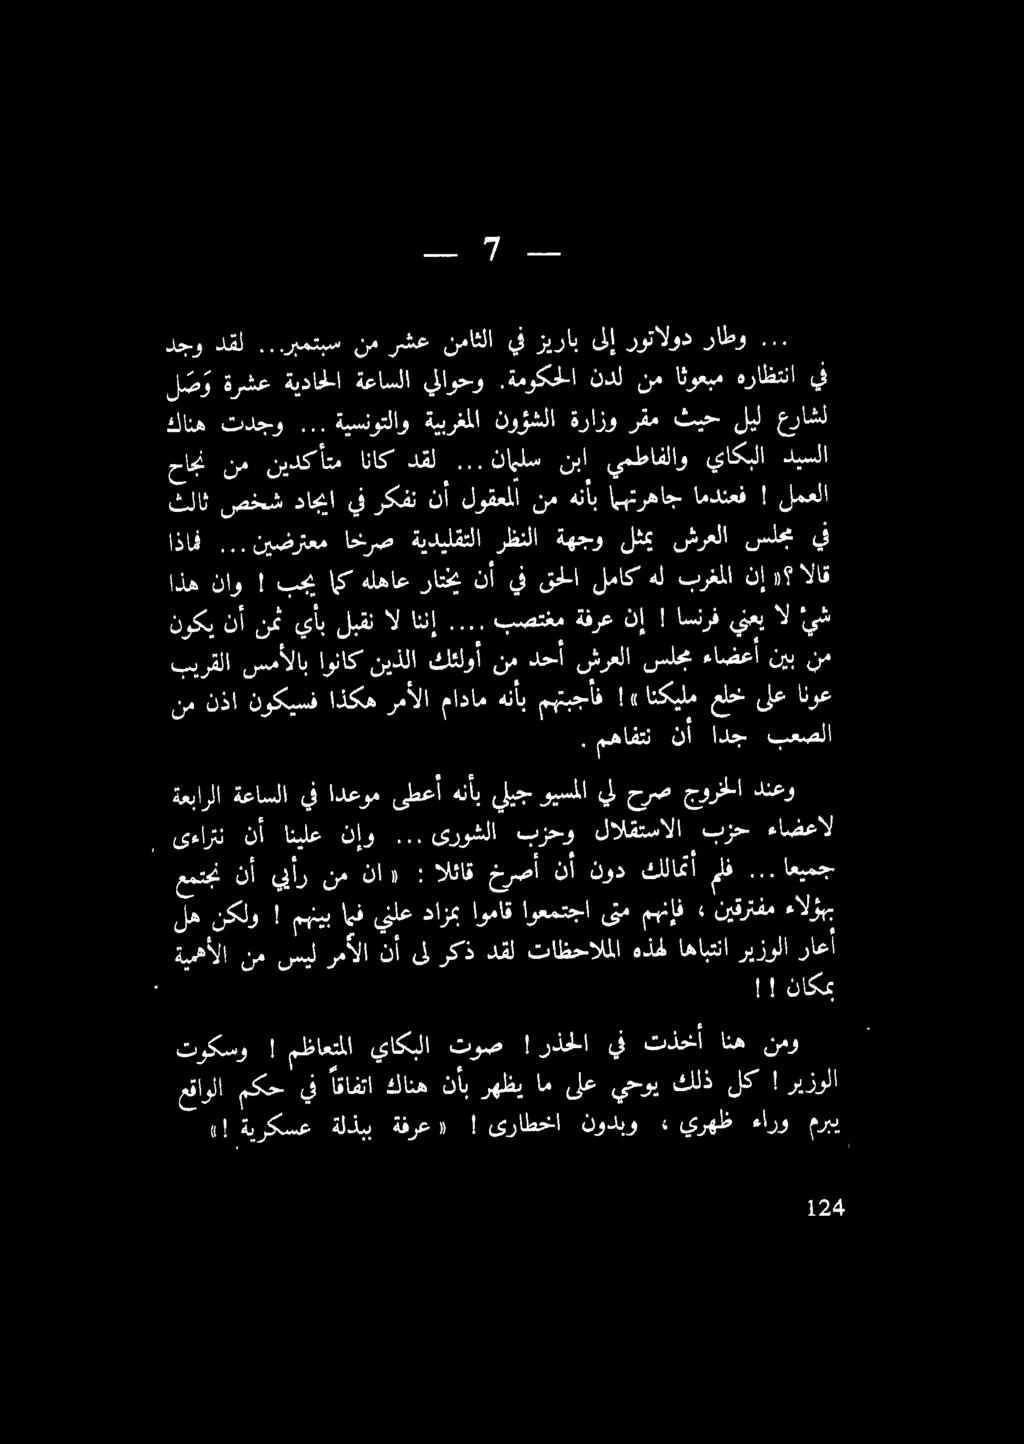 — 7 —
... وطار دولاتور إلى باريز في الثامن عشر من سبتمبر... لقد وجد
في انتظاره مبعوثا من لدن الحكومة. وحوالي الساعة الحادية عشرة وَصَل
لشارع ليل حيث مقر وزارة الشؤون المغربية والتونسية ... وجدت هناك
السيد البكاي والفاطمي ابن سليمان ... لقد كانا متأكدين من نجاح
العمل ! فعندما جاهرتهما بأنه من المعقول أن نفكر في ايجاد شخص ثالث
في مجلس العرش يمثل وجهة النظر التقليدية صرخا معترضين ... فماذا
قالا ؟ « إن المغرب له كامل الحق في أن يختار عاهله كما يجب ! وان هذا
شيء لا يعني فرنسا ! إن عرفة مغتصب .... إننا لا نقبل بأي ثمن أن يكون
من بين أعضاء مجلس العرش أحد من أولئك الذين كانوا بالأمس القريب
عونا على خلع مليكنا » ! فأجبتهم بأنه مادام الأمر هكذا فسيكون اذن من
الصعب جدا أن نتفاهم .
وعند الخروج صرح لي المسيو جيلي بأنه أعطى موعدا في الساعة الرابعة
لاعضاء حزب الاستقلال وحزب الشورى ... وإن علينا أن نتراءى
جميعا ... فلم أتمالك دون أن أصرخ قائلا : « ان من رأيي أن نجتمع
بهؤلاء مفترقين ، فإنهم متى اجتمعوا قاموا بمزاد علني فيما بينهم ! ولكن هل
أعار الوزير انتباها لهذه الملاحظات لقد ذكر لى أن الأمر ليس من الأهمية
بمكان ! !
ومن هنا أخذت في الحذر ! صوت البكاي المتعاظم ! وسكوت
الوزير ! كل ذلك يوحي على ما يظهر بأن هناك اتفاقاً في حكم الواقع
يبرم وراء ظهري ، وبدون اخطارى ! « عرفة ببذلة عسكرية ! »
124